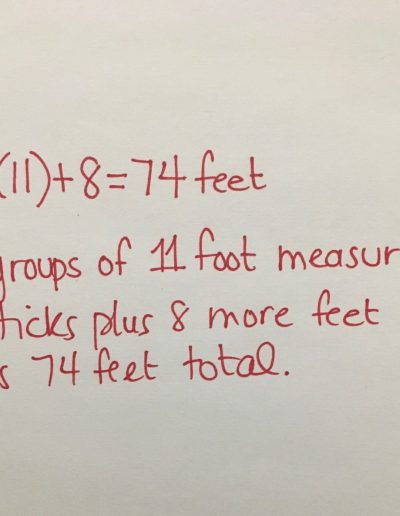 (11)+8=74 feet
groups of 11 foot measur
ticks plus 8 more feet
s 74 feet total.